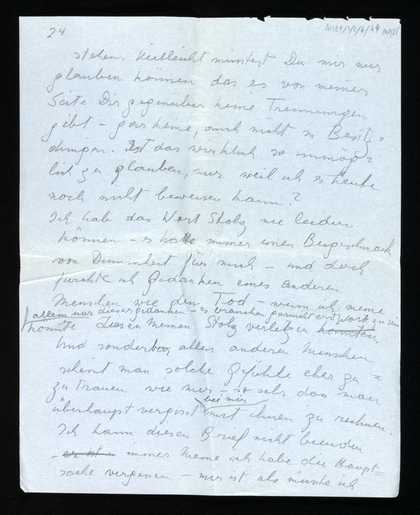 24
stehen. Vielleicht müsstest Du mir nur
glauben können das es von meiner
Seite Dir gegenueber keine Trennungen
gibt – gar keine, auch nicht in Besitz=
dingen. Ist das wirklich so unmög=
lich zu glauben, nur weil ich es heute
noch nicht beweisen kann?
Ich hab das Wort Stolz nie leiden
können – es hatte immer einen Beigeschmack
von Dummheit für mich – und doch
fürcht ich Gedanken eines anderen
Menschen wie den Tod – wenn ich meine
allein nur dieser gedanken – es brauchen garnicht erst Worte zu sein
könnte diesen meinen Stolz verletzen
Und sonderbar, allen anderen Menschen
scheint man solche Gefühle eher zu=
zu trauen wie mir – so sehr das man
bei mir
überhaupt vergisst mit ihnen zu rechnen.
Ich kann diesen Brief nicht beenden
immer meine ich habe die Haupt=
sache vergessen – mir ist als müsste ich